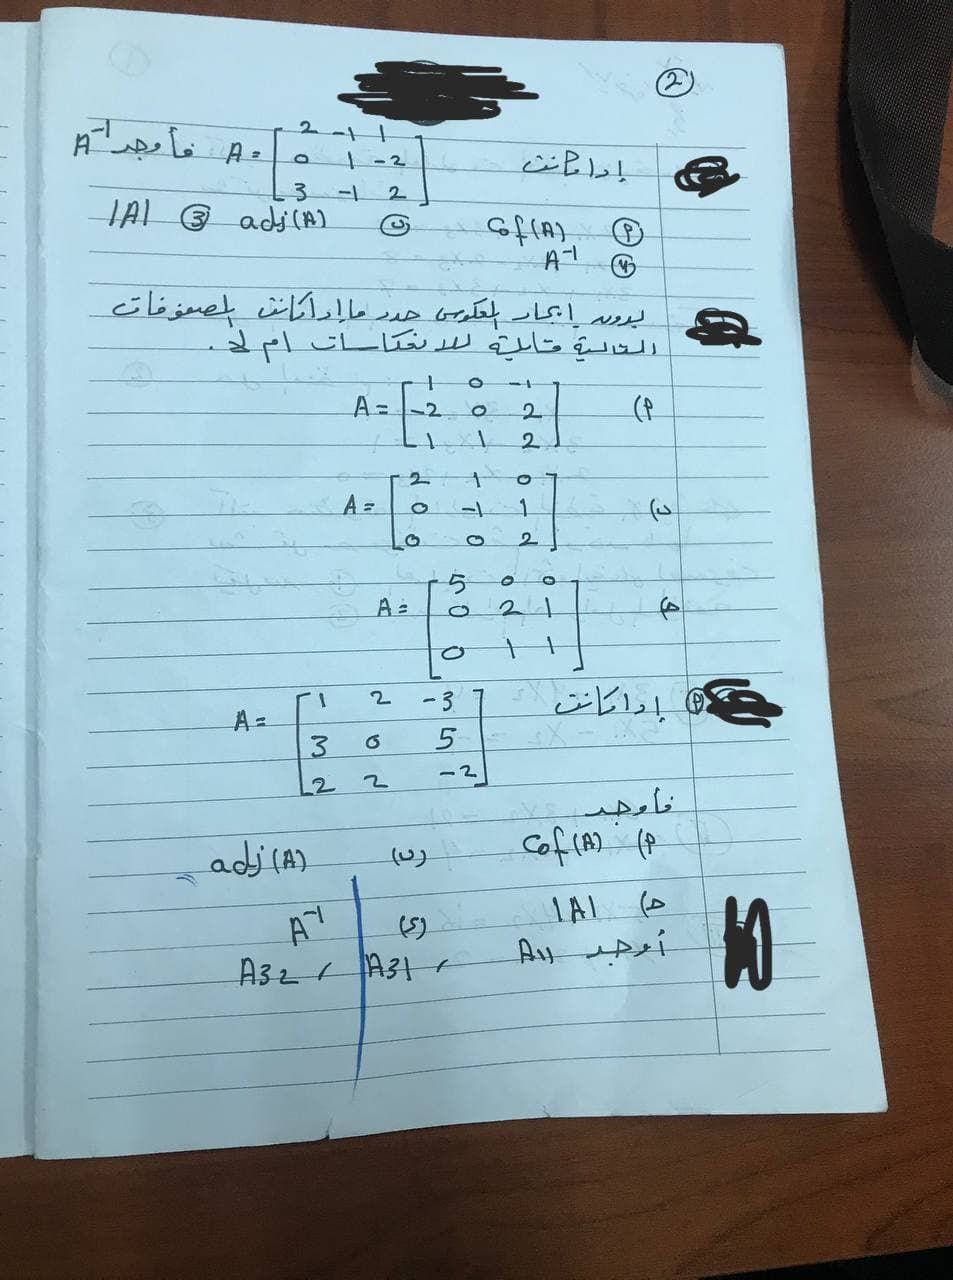 2
إذا كانت A = [ 2 -1 1 فأوجد A⁻¹
0 1 -2
3 -1 2 ]
(P) Cof(A) (ب) adj(A) (3) |A|
(4) A⁻¹
بدون إيجاد المعكوس حدد ما إذا كانت المصفوفات
التالية قابلة للانعكاسات ام لا.
P) A = [ 1 0 -1
-2 0 2
1 1 2 ]
ب) A = [ 2 1 0
0 -1 1
0 0 2 ]
ح) A = [ 5 0 0
0 2 1
0 1 1 ]
(P) إذا كانت A = [ 1 2 -3
3 0 5
2 2 -2 ]
فأوجد
P) Cof(A) (ب) adj(A)
ح) |A| (د) A⁻¹
أوجد A11 , A31 , A32